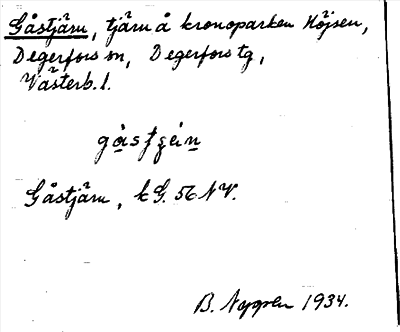 Gåstjärn, tjärn å kronoparken Höjsen,
Degerfors sn, Degerfors tg,
Västerb. l.
Gåstjärn, k G. 56 NV.
1934.